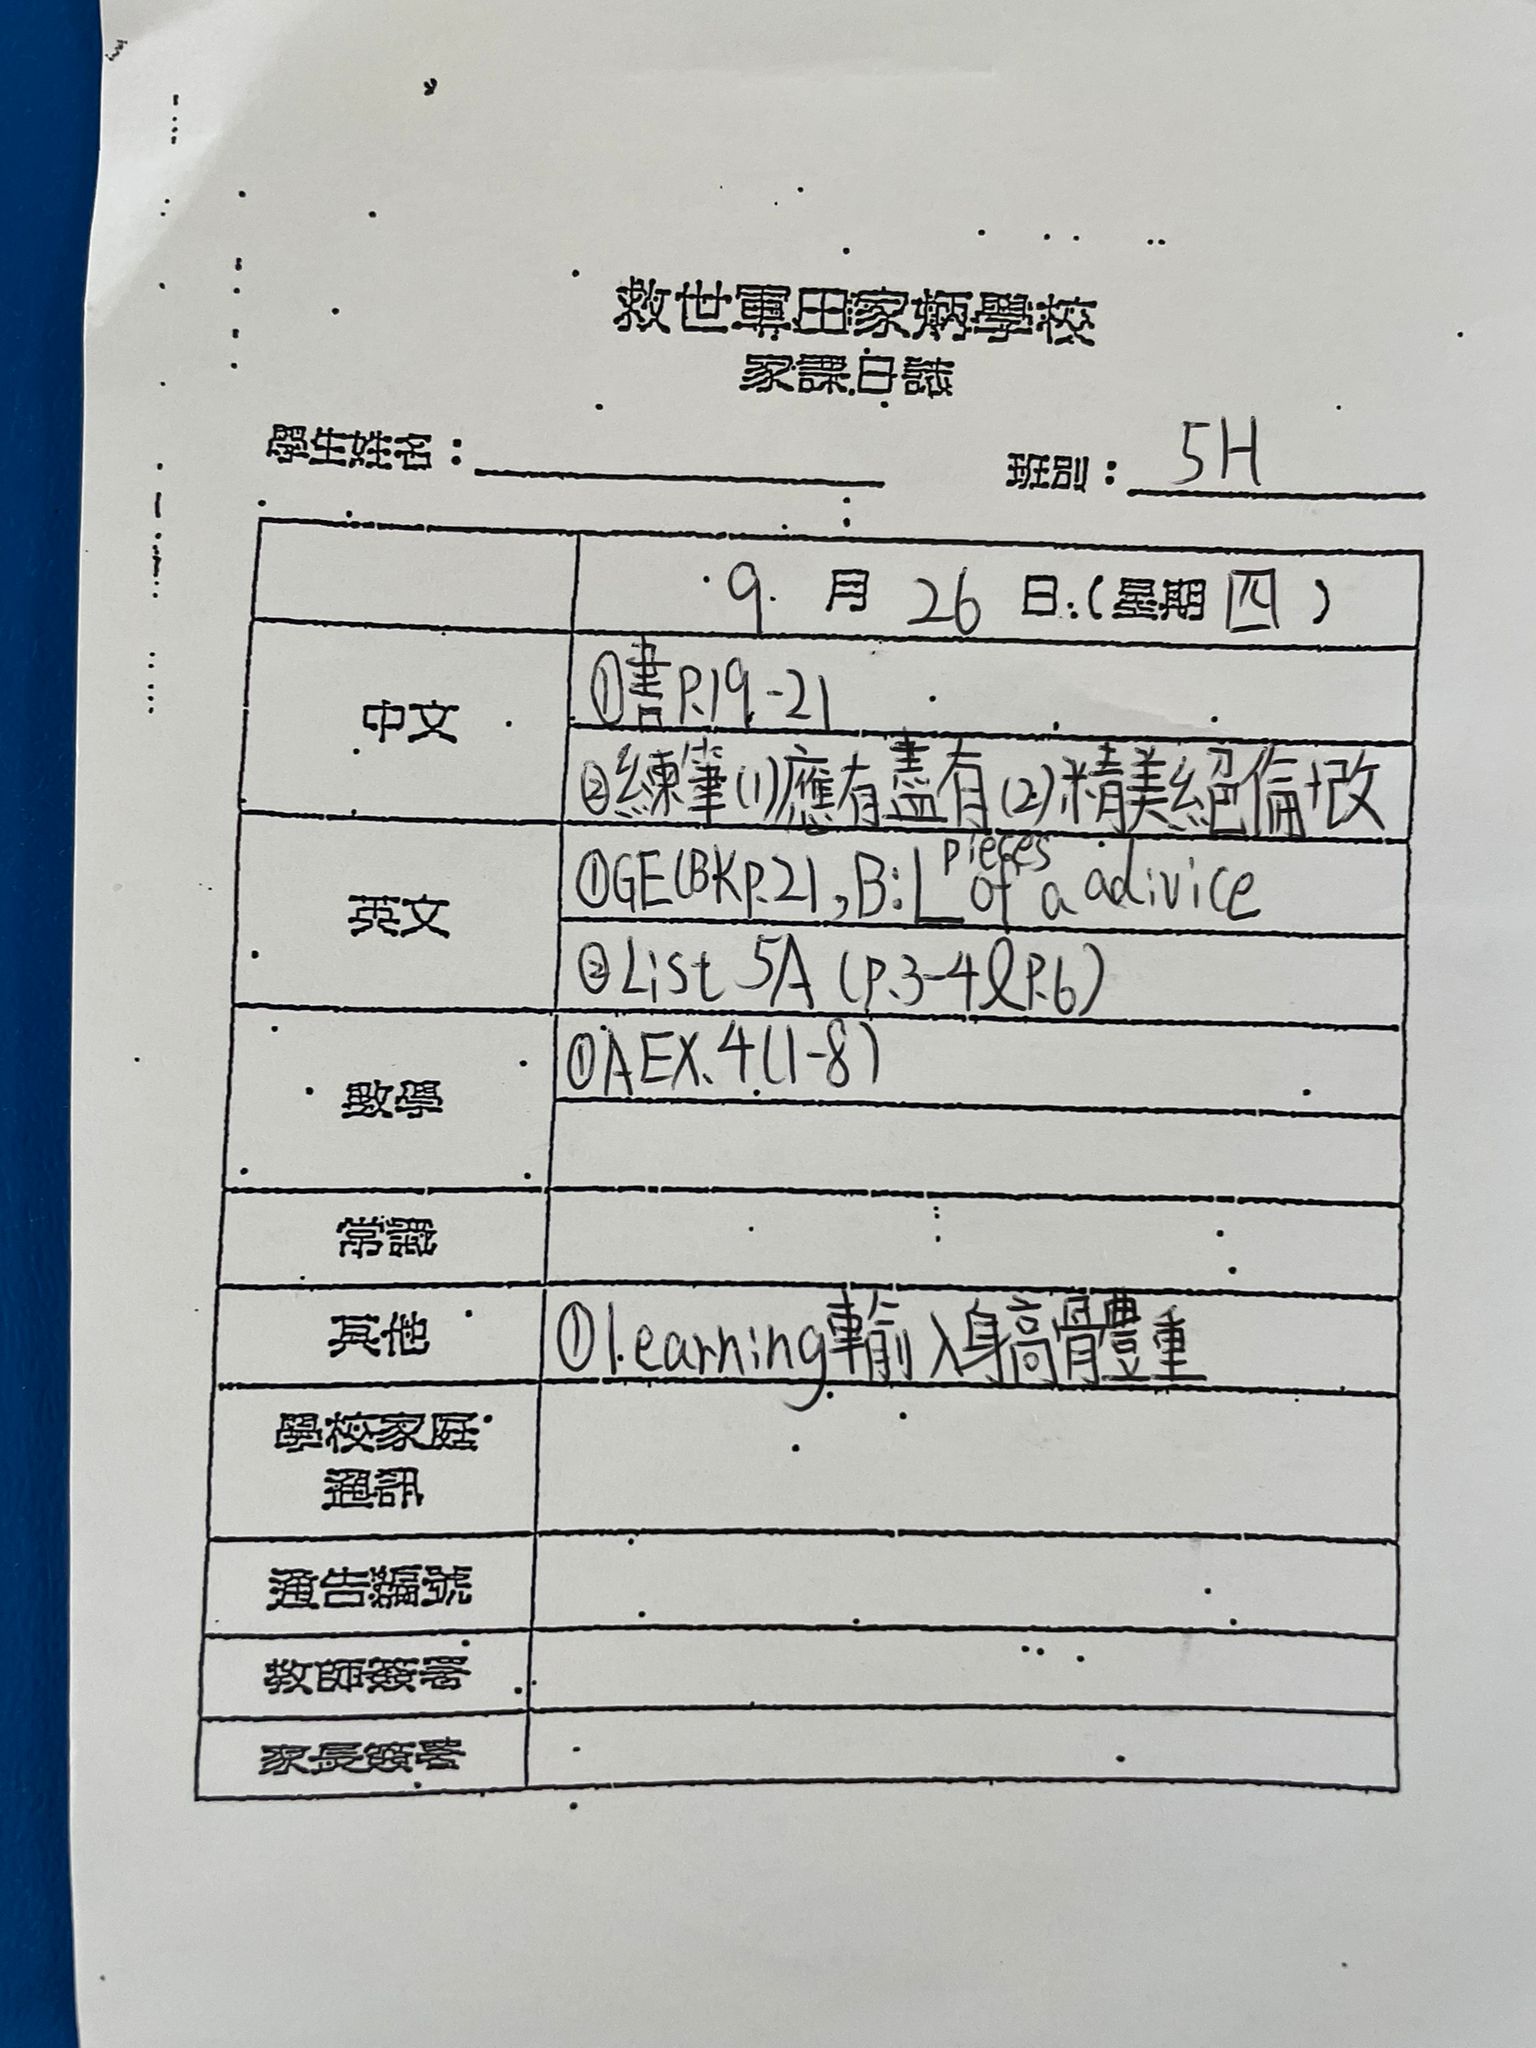 救世軍田家炳學校
家課日誌
學生姓名： 班別： 5H
9 月 26 日 (星期四)
中文
①書P.19-21
②練筆(1)應有盡有(2)精美絕倫+改
英文
①GE(BKP.21, B: pieces of a adivice
②List 5A (P.3-4&P.6)
數學
①AEX.4(1-8)
常識
其他
①learning輸入身高體重
學校家庭
通訊
通告編號
教師簽署
家長簽署